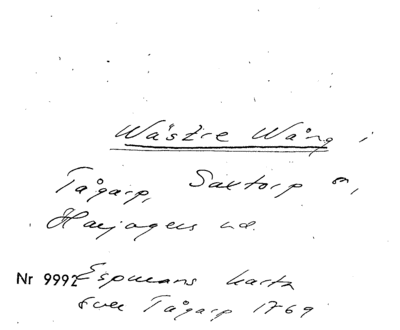 Wästre Wång i
Tågarp, Saxtorp sn,
Harjagers hd.
Nr 9992 Espmans karta
över Tågarp 1769